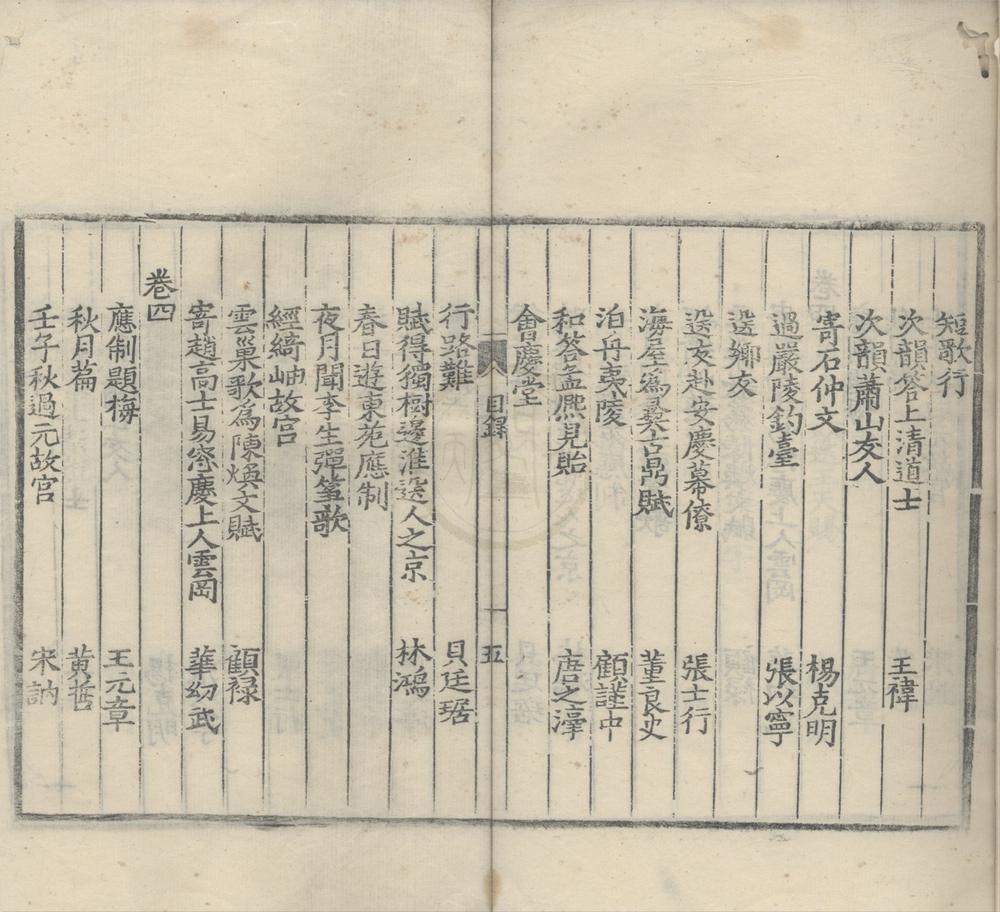 短歌行
次韻答上清道士 王褘
次韻蕭山友人
寄石仲文 楊克明
過嚴陵釣臺 張以寧
送鄉友
送友赴安慶幕僚 張士行
海屋為彞古鼎賦 董良史
泊舟夷陵 顧謹中
和答孟熈見貽 唐之淳
會慶堂
目錄 五
行路難 貝廷琚
賦得獨樹邊淮送人之京 林鴻
春日遊東苑應制
夜月聞李生彈箏歌
經綺岫故宮
雲巢歌為陳煥文賦 顧祿
寄趙高士易宻慶上人雲岡 華幼武
卷四
應制題梅 王元章
秋月篇 黃哲
壬子秋過元故宮 宋訥